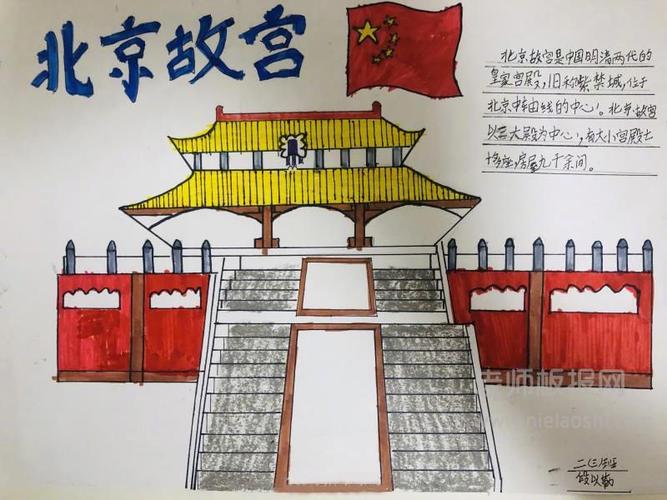 北京故宫
北京故宫是中国明清两代的
皇家宫殿，旧称紫禁城，位于
北京中轴线的中心。北京故宫
以三大殿为中心，有大小宫殿七
十多座，房屋九千余间。
老师板报网
nielaoshi
二（三）班